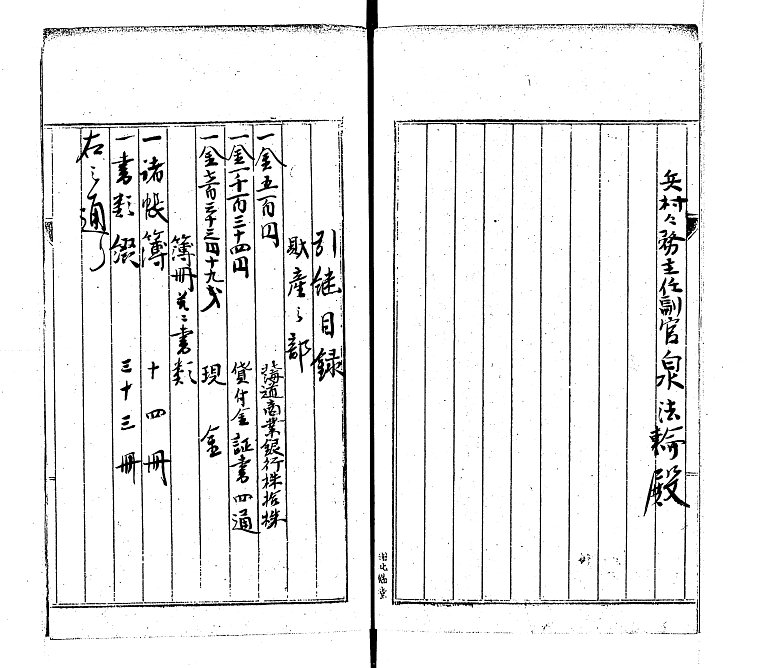 兵村々務主任副官 泉法輪殿
引継目録
財産之部
一金五百円 北海道商業銀行株拾株
一金一千百三十四円 貸付金証書四通
一金 三円四十九戋 現金
簿冊并ニ書類
一諸帳簿 十四冊
一書類綴 三十三冊
右之通